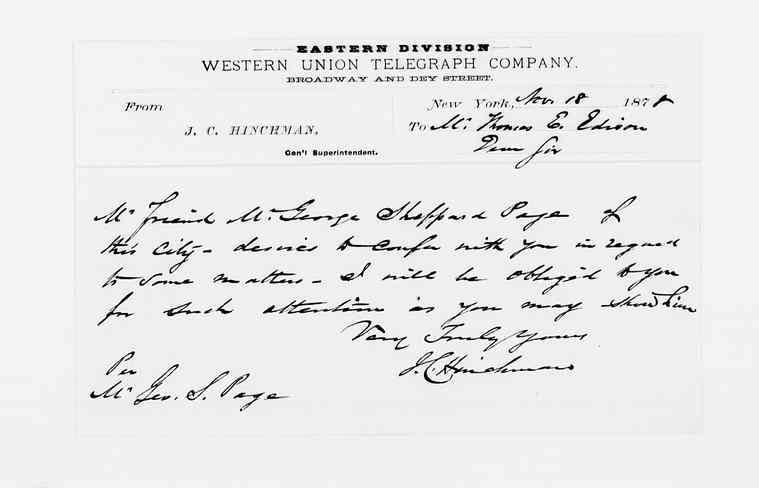 EASTERN DIVISION
WESTERN UNION TELEGRAPH COMPANY.
BROADWAY AND DEY STREET.
From
New York, Nov. 18 1878
J. C. HINCHMAN,
To Mr. Thomas E. Edison
Gen'l Superintendent.
Dear Sir
My friend Mr. George Sheppard Page of
this City - desires to confer with you in regard
to some matters - I will be obliged to you
for such attention as you may show him
Very Truly Yours
J.C. Hinchman
Per
Mr Geo. S. Page